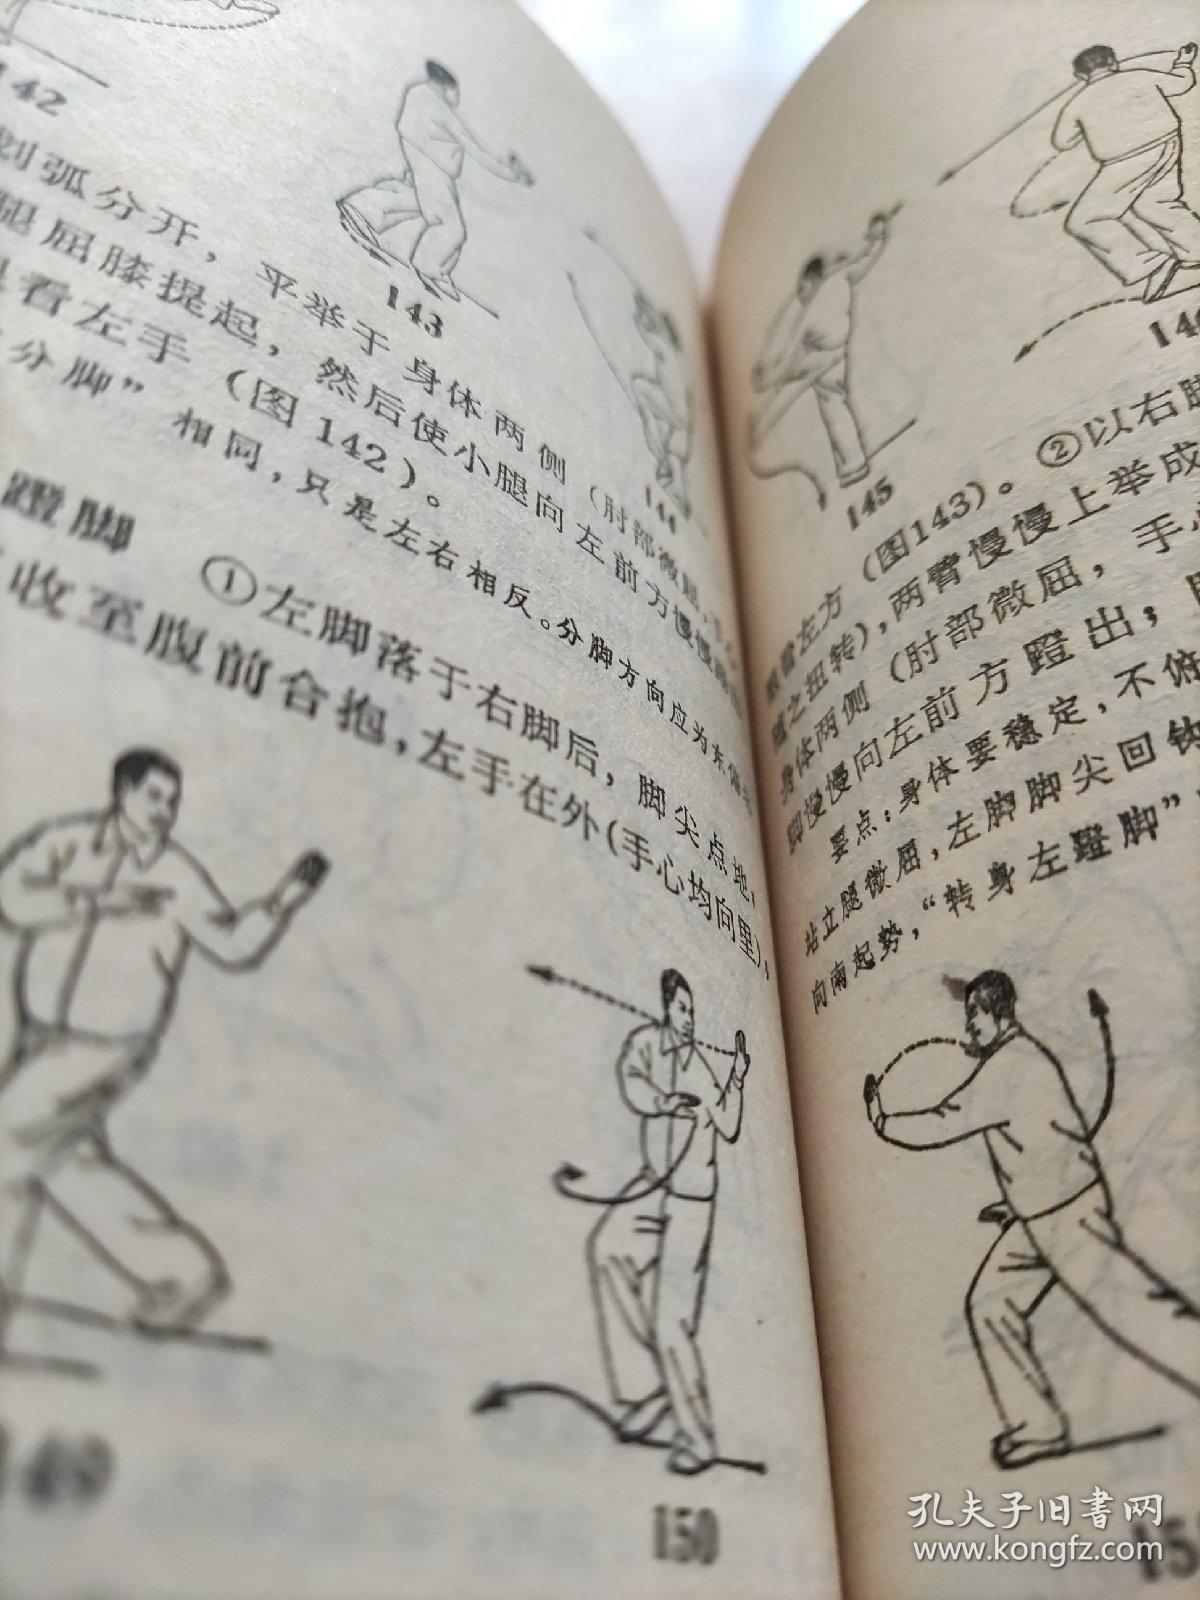 142
143
划弧分开，平举于身体两侧（肘部微屈，
腿屈膝提起，然后使小腿向左前方慢慢
看左手（图142）。
分脚”相同，只是左右相反。分脚方向应为东偏
144
蹬脚 ①左脚落于右脚后，脚尖点地，
收至腹前合抱，左手在外（手心均向里），
149
150
145
②以右脚
看左方（图143）。
随之扭转），两臂慢慢上举成
身体两侧（肘部微屈，手
脚慢慢向左前方蹬出，
要点：身体要稳定，不俯
站立腿微屈，左脚脚尖回
向南起势，“转身左蹬脚”
15
孔夫子旧书网
www.kongfz.com